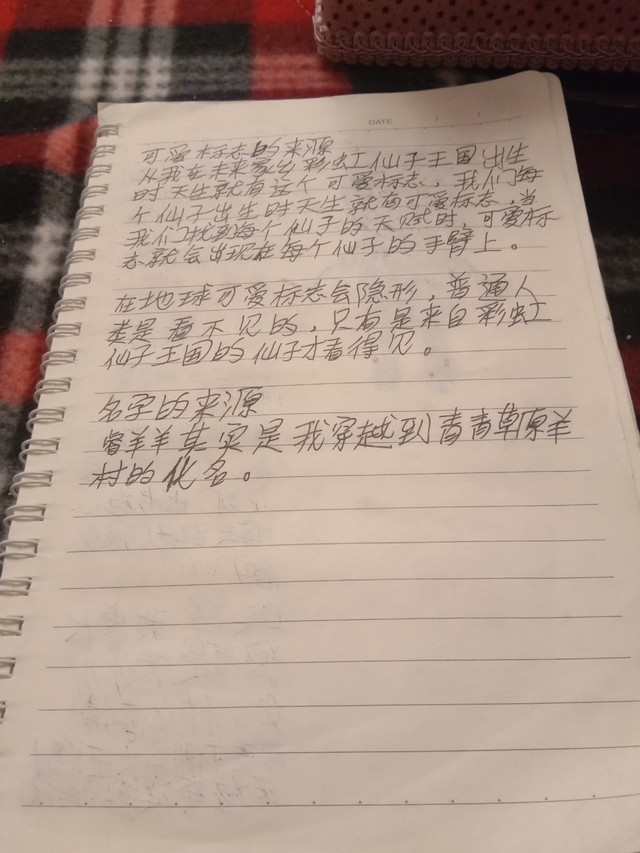 DATE
可爱标志的来源
从我在未来家乡彩虹仙子王国出生
时天生就有这个可爱标志，我们每
个仙子出生时天生就有可爱标志，当
我们找到每个仙子的天赋时，可爱标
志就会出现在每个仙子的手臂上。
在地球可爱标志会隐形，普通人
类是看不见的，只有是来自彩虹
仙子王国的仙子才看得见。
名字的来源
睿羊羊其实是我穿越到青青草原羊
村的化名。